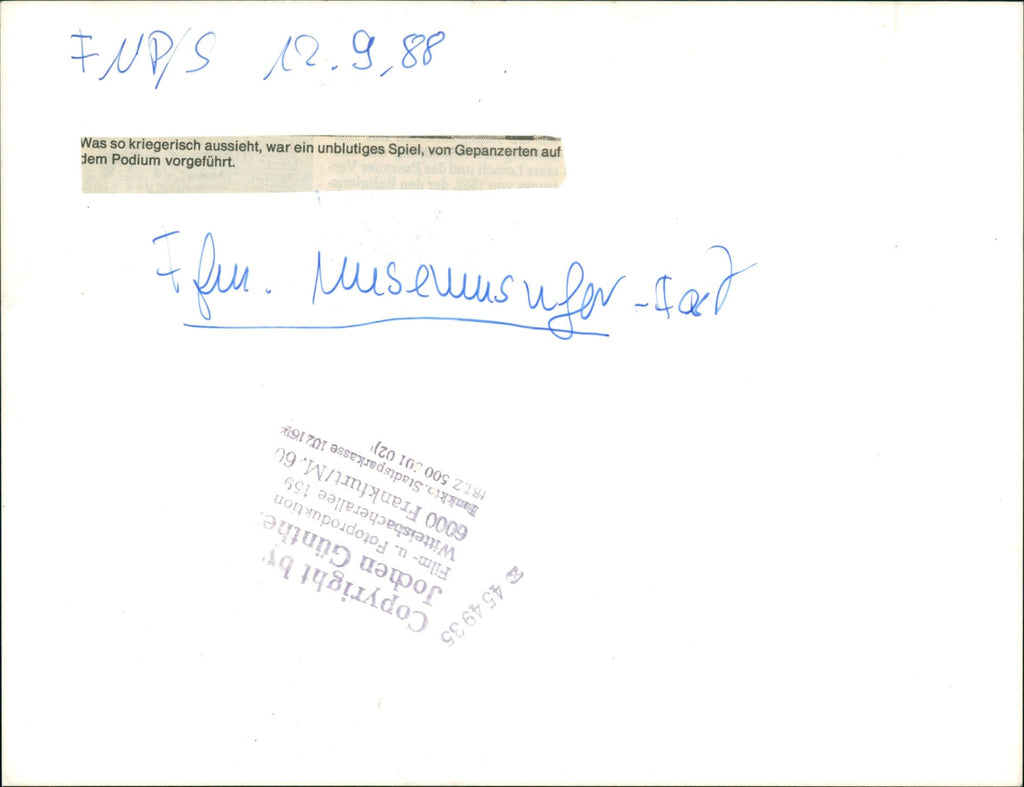 FNP/S 12.9.88
Was so kriegerisch aussieht, war ein unblutiges Spiel, von Gepanzerten auf
dem Podium vorgeführt.
Ffm. Museumsufer-Fest
Copyright by:
Jochen Günther
Film- u. Fotoproduktion
Wittelsbacherallee 159
6000 Frankfurt/M. 60
Bankkto. Stadtsparkasse
(BLZ 500 501 02)
454935